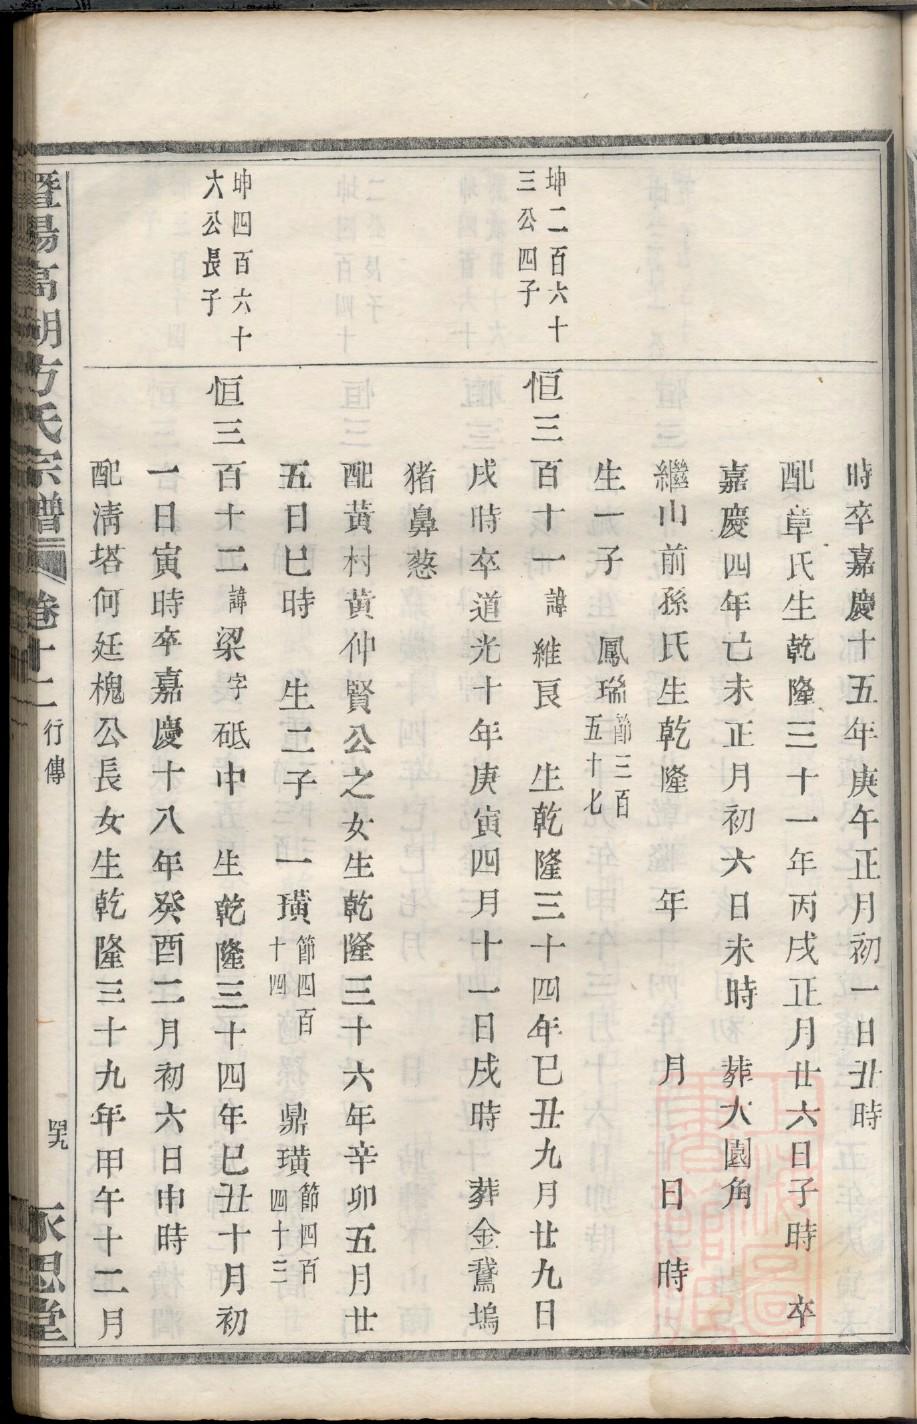 時卒嘉慶十五年庚午正月初一日丑時
配章氏生乾隆三十一年丙戌正月廿六日子時 卒
嘉慶四年亡未正月初六日未時 葬大園角
繼山前孫氏生乾隆 年 月 日 時
生一子 鳳瑞節三百五十七
坤二百六十
三公四子
恒三百十一諱維良 生乾隆三十四年巳丑九月廿九日
戌時卒道光十年庚寅四月十一日戌時 葬金鵞塢
猪鼻葱
配黃村黃仲賢公之女生乾隆三十六年辛卯五月廿
五日巳時 生二子 一璜節四百十四 鼎璜節四百四十三
坤四百六十
六公長子
恒三百十二諱梁字砥中 生乾隆三十四年巳丑十月初
一日寅時卒嘉慶十八年癸酉二月初六日申時
配清塔何廷槐公長女生乾隆三十九年甲午十二月
暨陽高湖方氏宗譜 卷十二 行傳 四九 永思堂